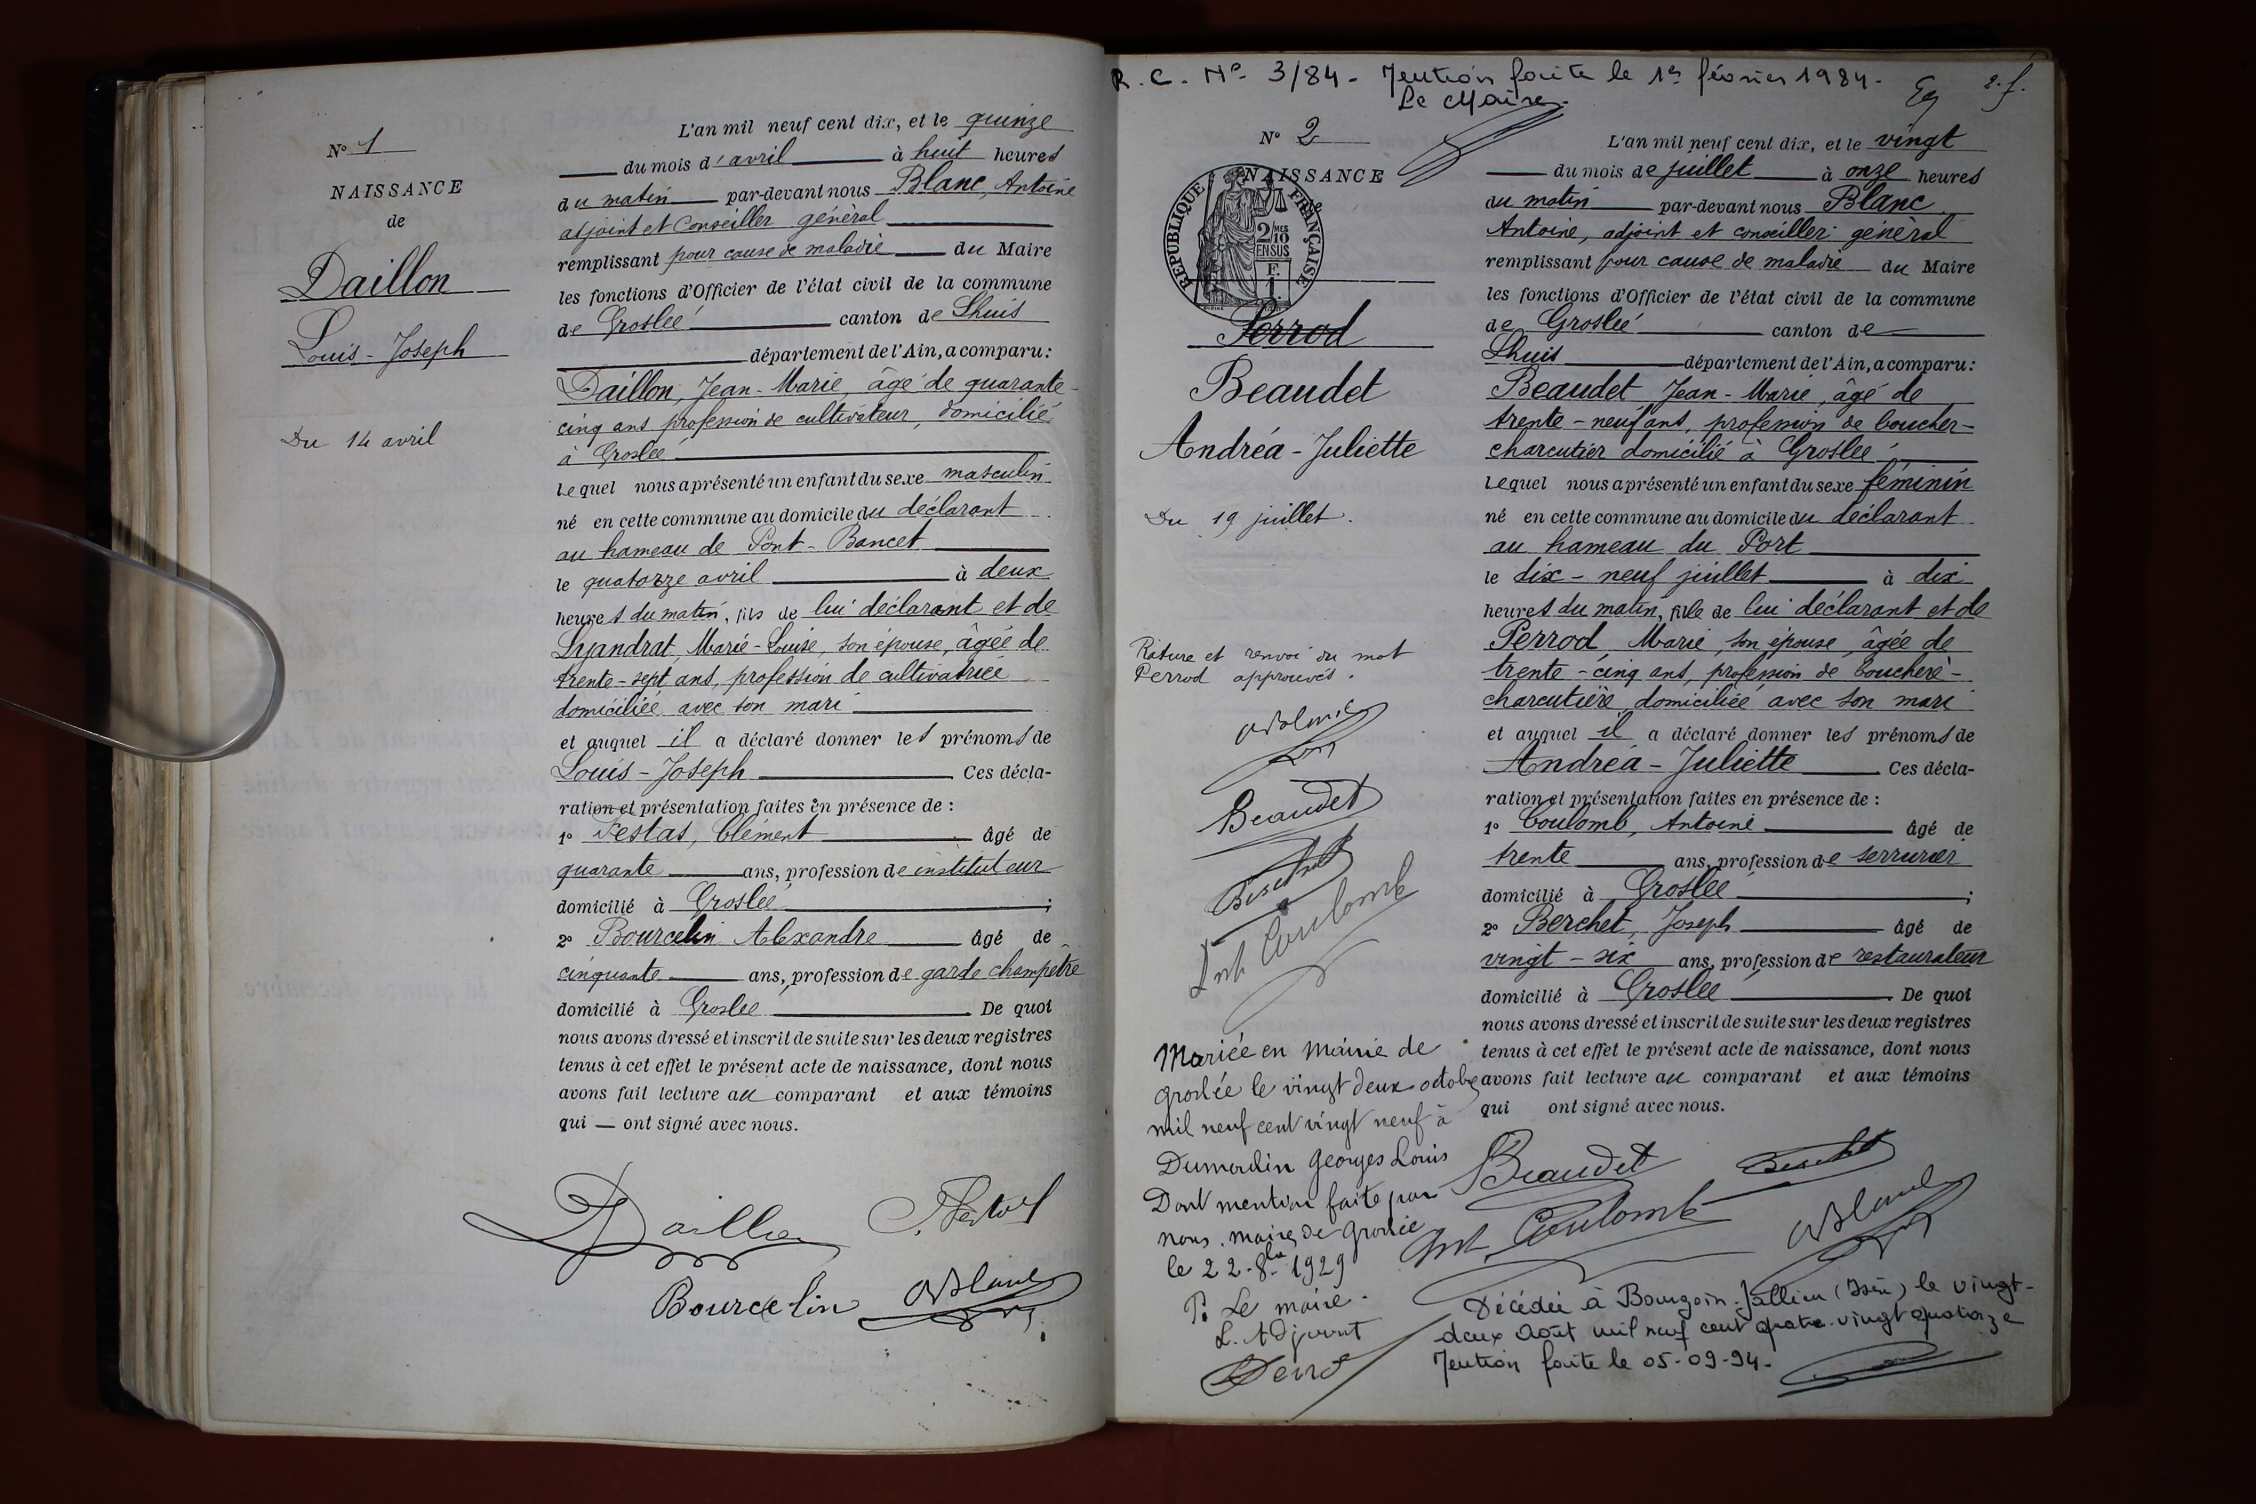 N° 1
NAISSANCE
de
Daillon
Louis-Joseph
Du 14 avril
L'an mil neuf cent dix, et le quinze
du mois d'avril à huit heures
du matin par-devant nous Blanc, Antoine
adjoint et Conseiller général
remplissant pour cause de maladie du Maire
les fonctions d'Officier de l'état civil de la commune
de Groslée canton de Lhuis
département de l'Ain, a comparu:
Daillon, Jean-Marie, âgé de quarante-
cinq ans profession de cultivateur, domicilié
à Groslée
Lequel nous a présenté un enfant du sexe masculin
né en cette commune au domicile du déclarant
au hameau de Pont-Bancet
le quatorze avril à deux
heures du matin, fils de lui déclarant et de
Marie-Louise, son épouse, âgée de
trente-sept ans, profession de cultivatrice
domiciliée avec son mari
et auquel il a déclaré donner les prénoms de
Louis-Joseph Ces décla-
ration et présentation faites en présence de :
1° Festas, Clément âgé de
quarante ans, profession de instituteur
domicilié à Groslée ;
2° Bourcelin Alexandre âgé de
cinquante ans, profession de garde champêtre
domicilié à Groslée De quoi
nous avons dressé et inscrit de suite sur les deux registres
tenus à cet effet le présent acte de naissance, dont nous
avons fait lecture au comparant et aux témoins
qui ont signé avec nous.
Daillon
Bourcelin ABlanc
R. C. N° 3/84 - Mention faite le 1er février 1984.
Le Maire.
2. f.
N° 2
NAISSANCE
RÉPUBLIQUE FRANÇAISE
2/10 MES
EN SUS
Perrod
Beaudet
Andréa-Juliette
Du 19 juillet.
Rature et renvoi du mot
Perrod approuvés.
ABlanc
Beaudet
Berchet
Ant Coulomb
Mariée en Mairie de
Groslée le vingt deux octobre
mil neuf cent vingt neuf à
Dumoulin Georges Louis
Dont mention faite par
nous, maire de Groslée
le 22-8bre 1929
P. Le maire.
L'Adjoint
L'an mil neuf cent dix, et le vingt
du mois de juillet à onze heures
du matin par-devant nous Blanc
Antoine, adjoint et conseiller général
remplissant pour cause de maladie du Maire
les fonctions d'Officier de l'état civil de la commune
de Groslée canton de
Lhuis département de l'Ain, a comparu:
Beaudet Jean-Marie, âgé de
trente-neuf ans, profession de boucher-
charcutier domicilié à Groslée
Lequel nous a présenté un enfant du sexe féminin
né en cette commune au domicile du déclarant
au hameau du Port
le dix-neuf juillet à dix
heures du matin, fille de lui déclarant et de
Perrod, Marie, son épouse, âgée de
trente-cinq ans, profession de bouchère-
charcutière, domiciliée avec son mari
et auquel il a déclaré donner les prénoms de
Andréa-Juliette Ces décla-
ration et présentation faites en présence de :
1° Coulomb, Antoine âgé de
trente ans, profession de serrurier
domicilié à Groslée ;
2° Berchet, Joseph âgé de
vingt-six ans, profession de restaurateur
domicilié à Groslée De quoi
nous avons dressé et inscrit de suite sur les deux registres
tenus à cet effet le présent acte de naissance, dont nous
avons fait lecture au comparant et aux témoins
qui ont signé avec nous.
Beaudet Berchet
Ant Coulomb ABlanc
Décédée à Bourgoin-Jallieu (Isère) le vingt-
deux Août mil neuf cent quatre-vingt quatorze
Mention faite le 05-09-94-